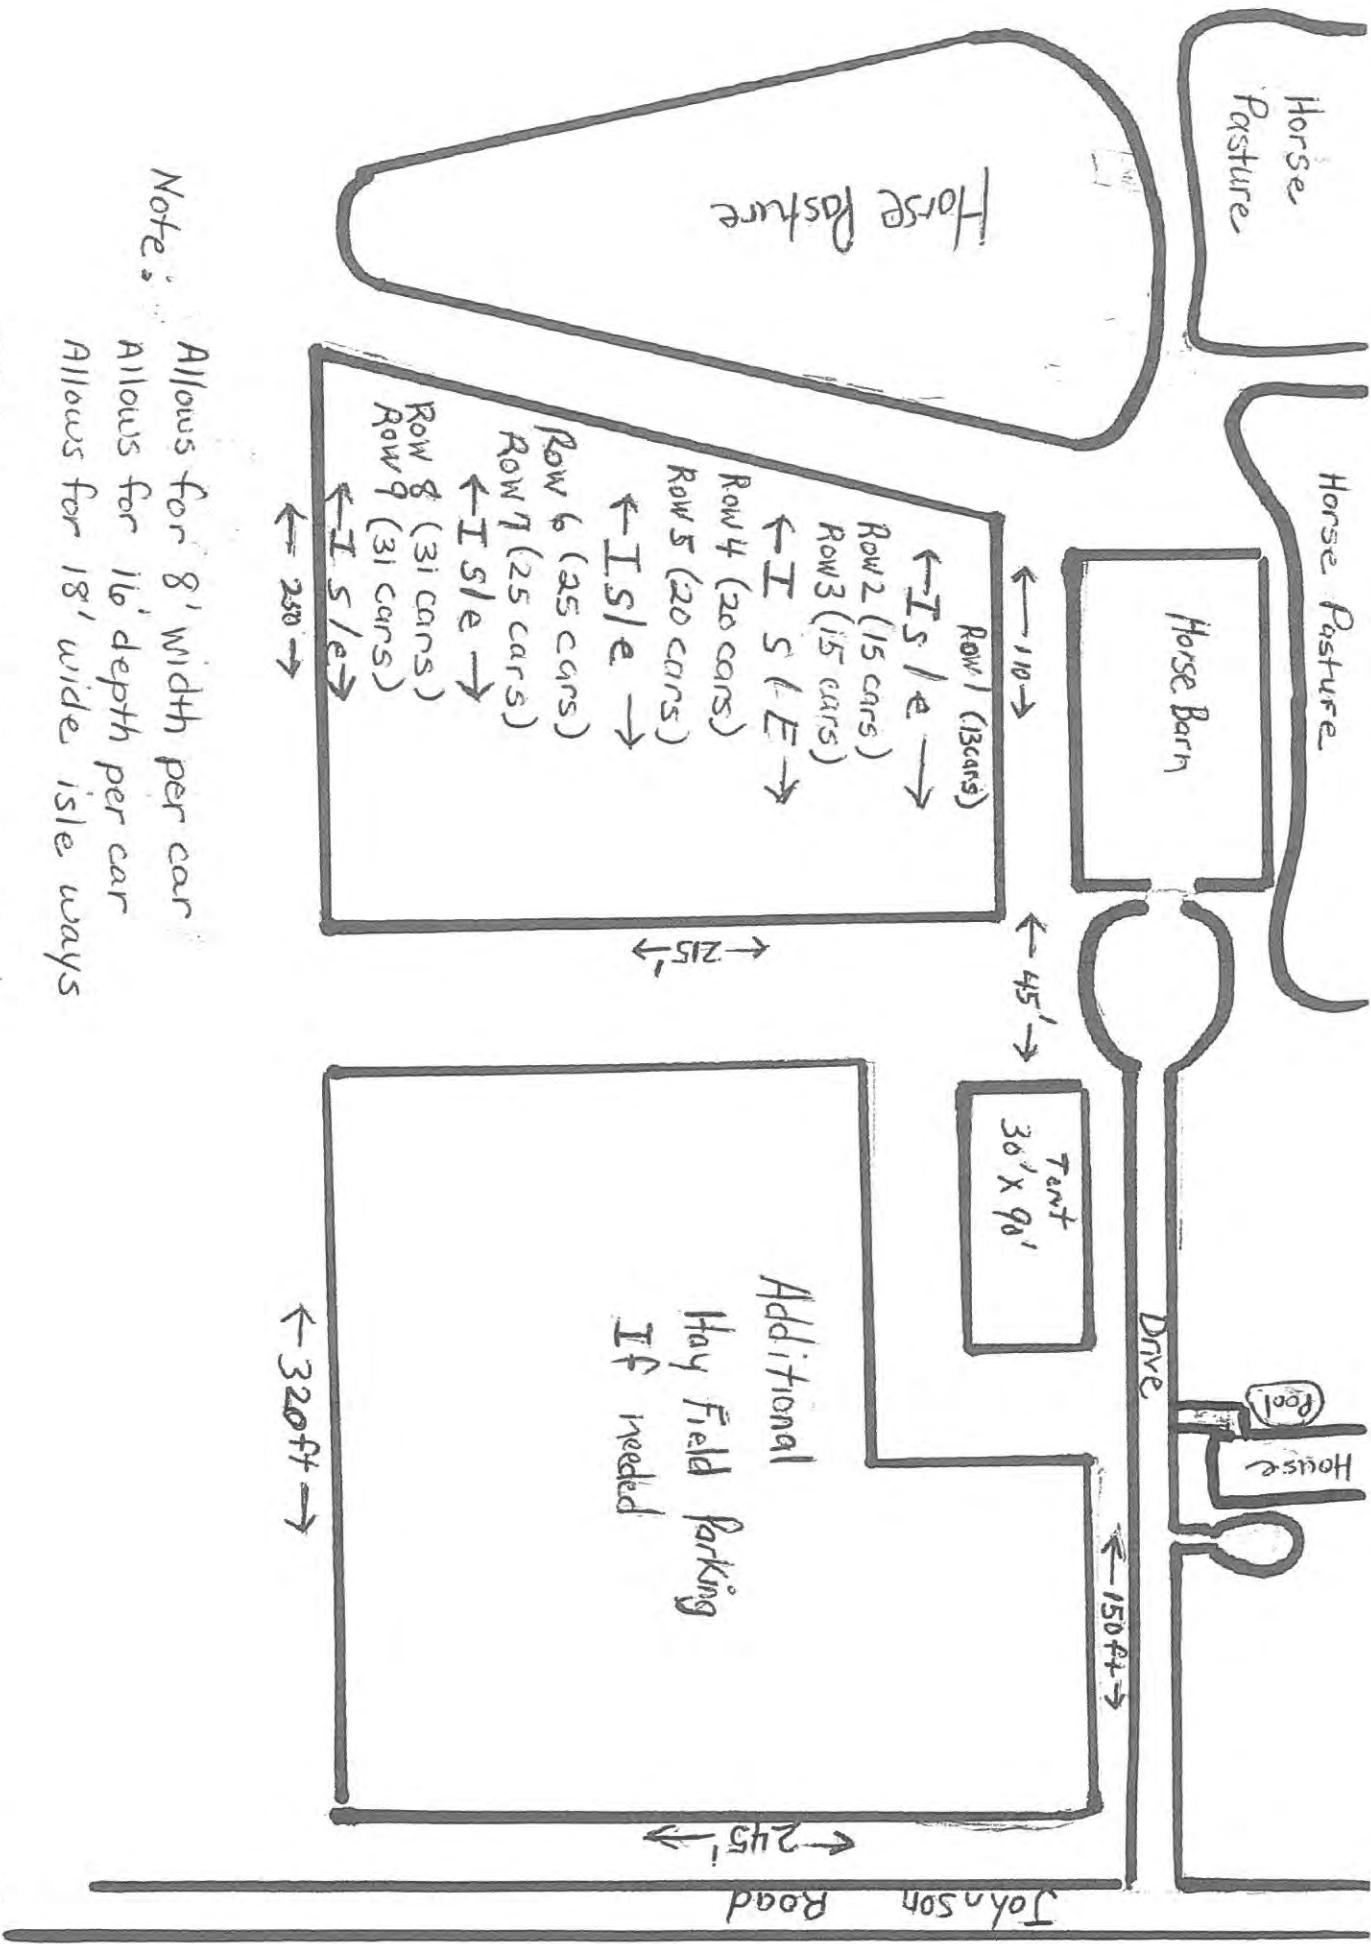 Horse
Pasture
Horse Pasture
Horse Pasture
Horse Barn
← 110 →
Row 1 (13 cars)
← Isle →
Row 2 (15 cars)
Row 3 (15 cars)
← I S l E →
Row 4 (20 cars)
Row 5 (20 cars)
← Isle →
Row 6 (25 cars)
Row 7 (25 cars)
← Isle →
Row 8 (31 cars)
Row 9 (31 cars)
← Isle →
← 250 →
← 215' →
← 45' →
Tent
30' X 90'
Drive
Pool
House
← 150ft →
Additional
Hay Field Parking
If needed
← 320ft →
← 245' →
Johnson Road
Note: Allows for 8' width per car
Allows for 16' depth per car
Allows for 18' wide isle ways